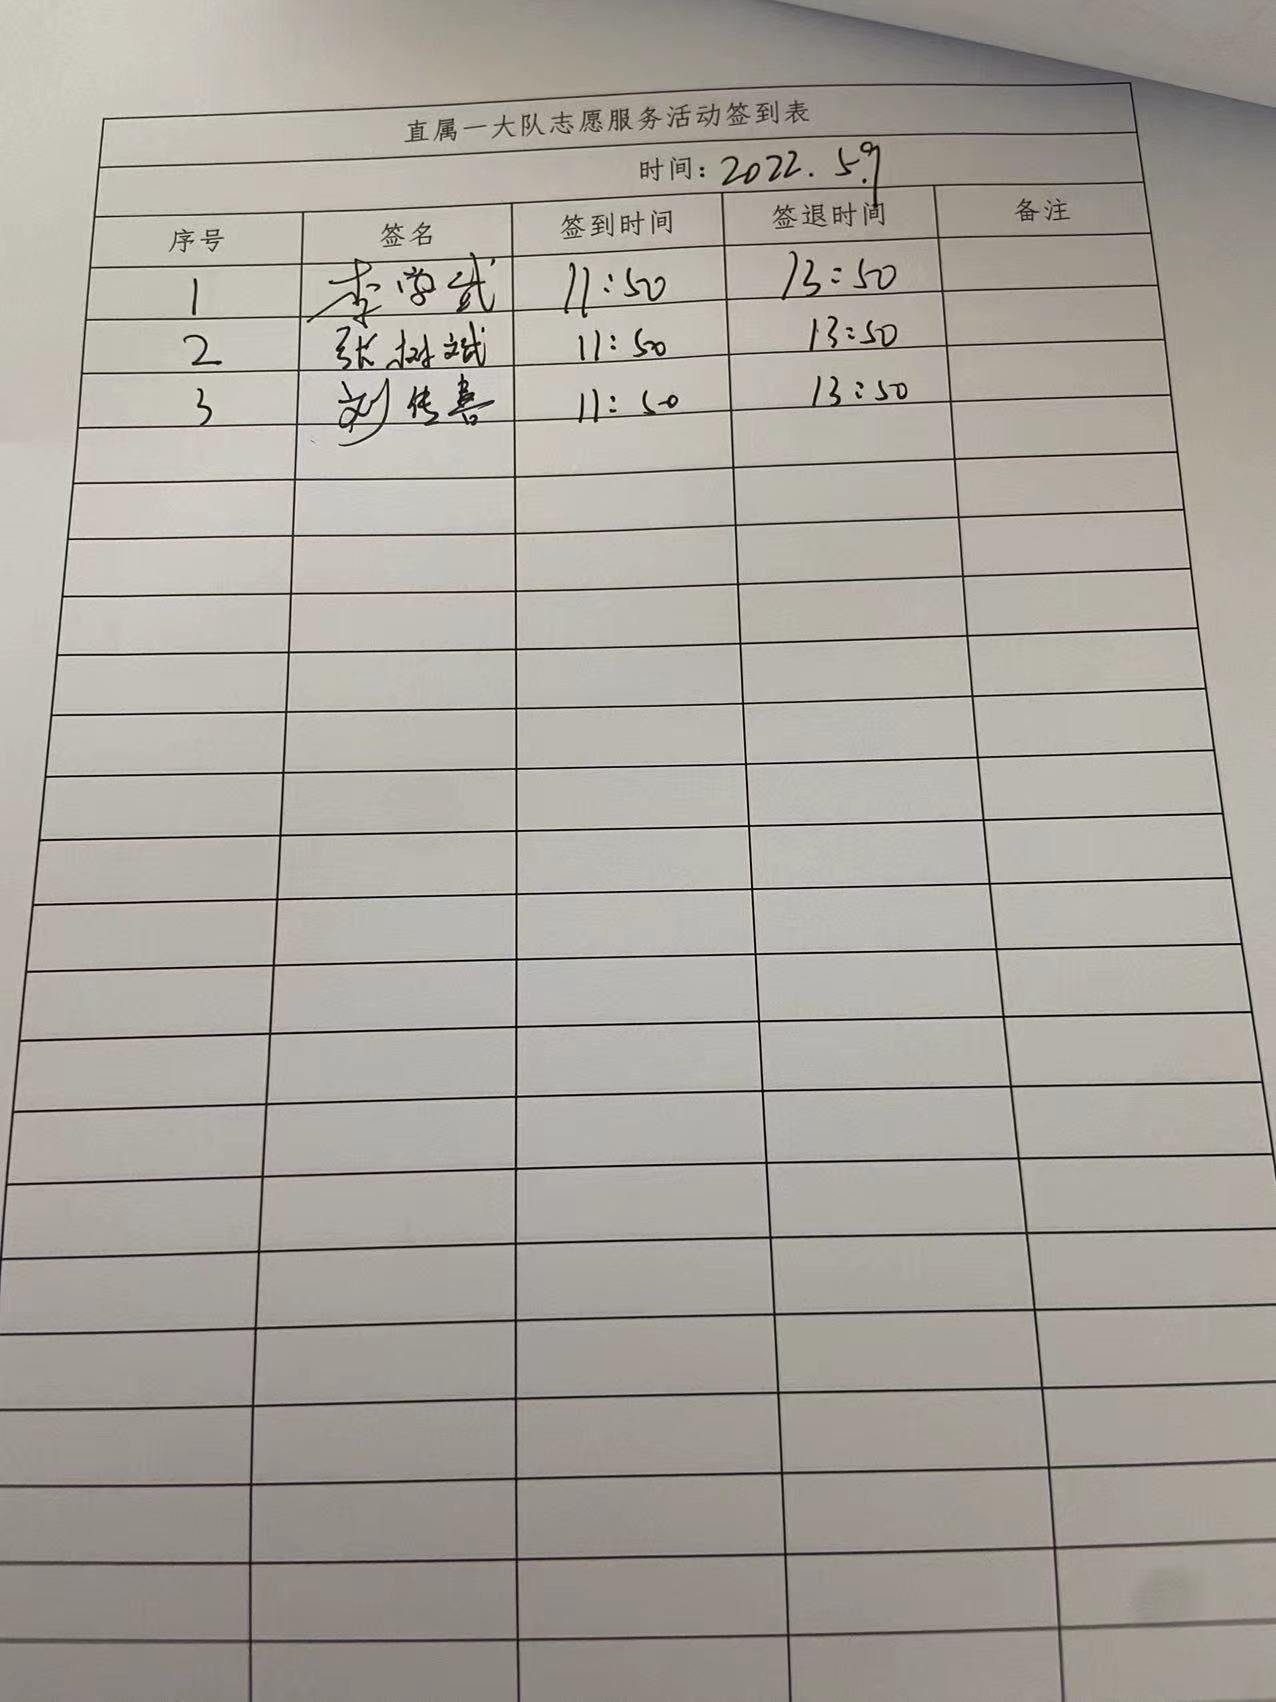 直属一大队志愿服务活动签到表
时间：2022.5.9
序号 签名 签到时间 签退时间 备注
1 李学武 11:50 13:50
2 张树斌 11:50 13:50
3 刘传喜 11:50 13:50